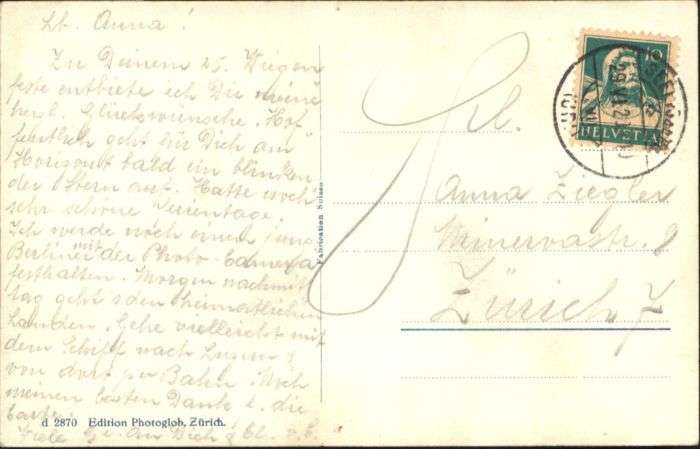 Lb. Anna!
Zu Deinem 25. Wiegen
feste entbiete ich Dir meine
herzl. Glückwünsche. Hof
fentlich geht für Dich am
Horizont bald ein blinken
der Stern auf. Hatte noch
sehr schöne Ferientage.
Ich werde noch einen jung
Berliner mit der Photo-Camera
festhalten. Morgen nachmit
tag geht's den heimatlichen
Landen. Gehe vielleicht mit
dem Schiff nach Luzern &
von dort per Bahn. Noch
meinen besten Dank f. die
Karte.
Viele Gr. an Dich & El. v. E.
d 2870 Edition Photoglob, Zürich.
Fabrication Suisse
10
HELVETIA
Frl.
Anna Ziegler
Minervastr. 9
Zürich 7